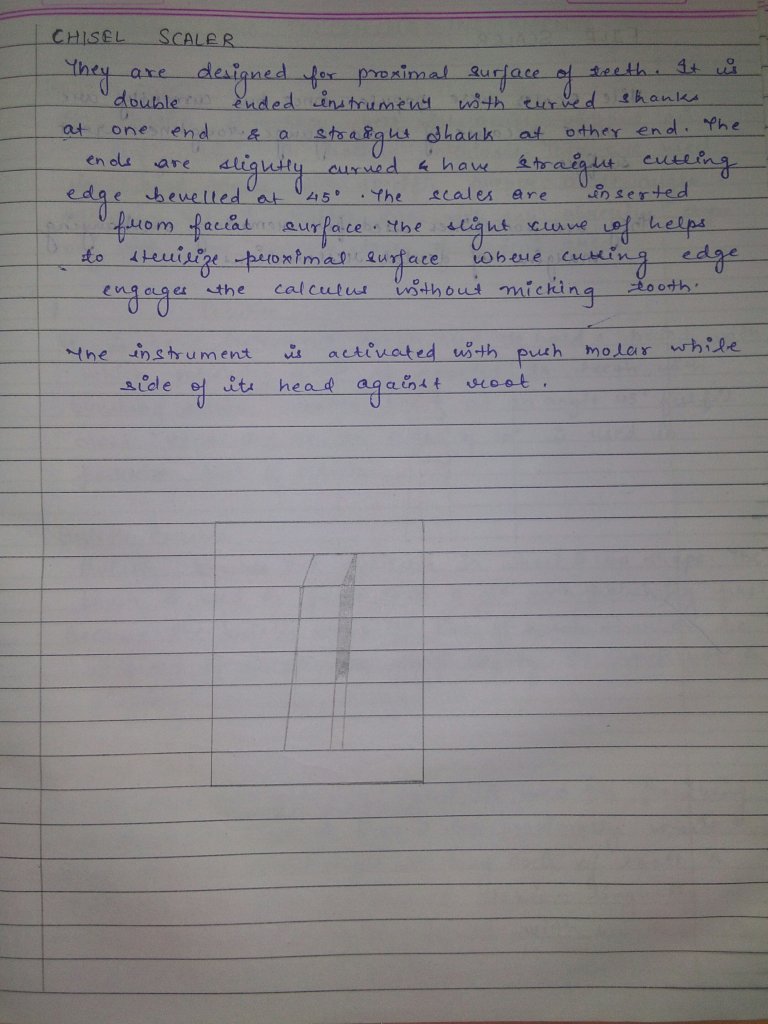 CHISEL SCALER
They are designed for proximal surface of teeth. It is
double ended instrument with curved shanks
at one end & a straight shank at other end. The
ends are slightly curved & have straight cutting
edge bevelled at 45°. The scales are inserted
from facial surface. The slight curve of helps
to sterilize proximal surface where cutting edge
engages the calculus without micking tooth.
The instrument is activated with push molar while
side of its head against root.